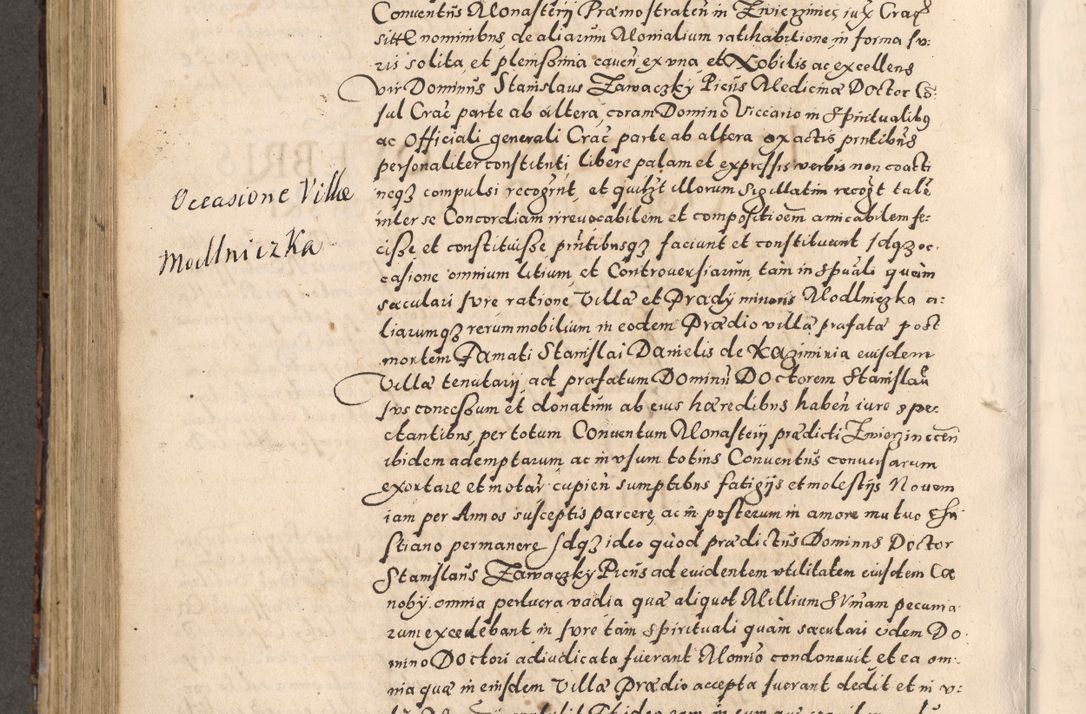 Conventus Monasterij Præmostraten in Zwierziniec iux Crac
sitæ nominibus de aliarum Monialium ratihabitione in forma Iu:
ris solita et plenissima caven ex vna et Nobilis ac excellens
vir Dominus Stanislaus Zawaczky Picus Medicinæ Doctor Cõ:
sul Crac parte ab altera, coram Domino Viccario in Spiritualibus
ac Officiali generali Crac parte ab altera ex actis prñtibus
personaliter constituti libere palam et expressis verbis non coacti
neqz compulsi recogrũt, et quilzt illorum sigillatim recogt tale
inter se Concordiam irrevocabilem et compositioem amicabilem fe:
cisse et constituisse prñtibusqz faciunt et constituunt Idqz oc:
casione omnium litium et Controversiarum, tam in spũali quam
sæculari Iure ratione Villæ et Prædy minoris Modlniczka a:
liarumqz rerum mobilium in eodem Prædio villa præfata post
mortem Famati Stanislai Danielis de Kazimiria eiusdem
Villæ tenutarij ad præfatum Dominũ Doctorem Stanislaũ
Ius concessum et donatum ab eius hæredibus haben iure spe:
ctantibus, per totum Conventum Monasterij prædicti Zwierzinecen
ibidem ademptarum ac in vsum totius Conventus conversarum
exortare et motar cupien sumptibus fatigijs et molestijs Novem
iam per Annos susceptis parcere, ac in posterum in amore mutuo Chri
stiano permanere Idqz ideo quod prædictus Dominus Doctor
Stanislaus Zawaczky Picus ad evidentem vtilitatem eiusdem Cæ
noby omnia perlucra vadia quæ aliquot Millium Sumam pecunia
rum excedebant in Iure tam spirituali quam sæculari eidem Do:
mino Doctori adiudicata fuerant Monrio condonavit et ea om:
nia quæ in eiusdem Villæ Prædio accepta fuerant dedit et in v:

Occasione Villæ
Modlniczka